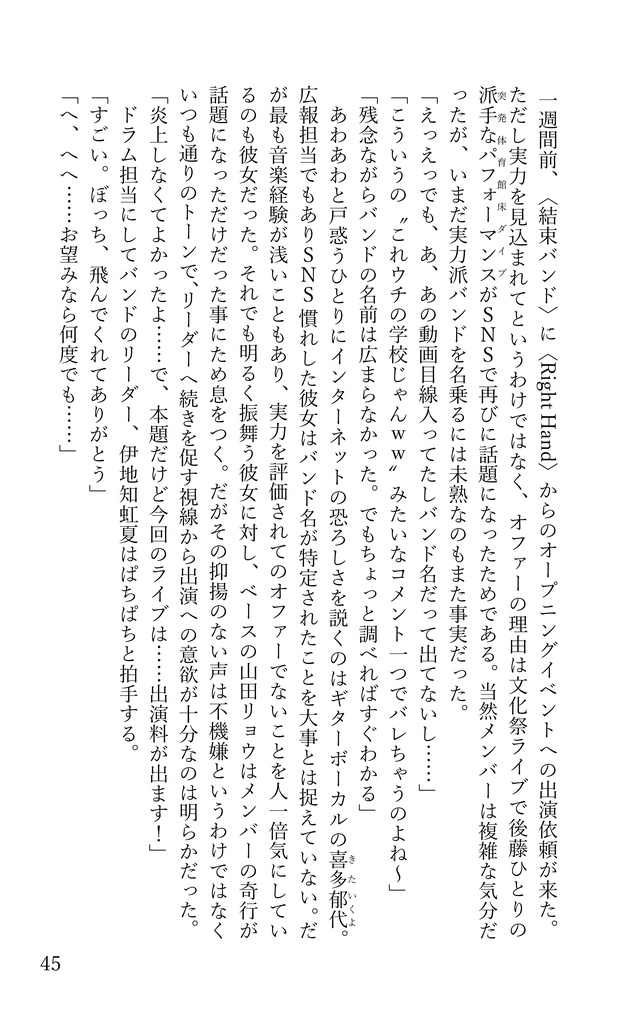 一週間前、〈結束バンド〉に〈Right Hand〉からのオープニングイベントへの出演依頼が来た。
ただし実力を見込まれてというわけではなく、オファーの理由は文化祭ライブで後藤ひとりの
派手なパフォーマンスがSNSで再びに話題になったためである。当然メンバーは複雑な気分だ
突発体育館床ダイブ
ったが、いまだ実力派バンドを名乗るには未熟なのもまた事実だった。
「えっえっでも、あ、あの動画目線入ってたしバンド名だって出てないし……」
「こういうの〝これウチの学校じゃんｗｗ〟みたいなコメント一つでバレちゃうのよね～」
「残念ながらバンドの名前は広まらなかった。でもちょっと調べればすぐわかる」
あわあわと戸惑うひとりにインターネットの恐ろしさを説くのはギターボーカルの喜多郁代。
きたいくよ
広報担当でもありSNS慣れした彼女はバンド名が特定されたことを大事とは捉えていない。だ
が最も音楽経験が浅いこともあり、実力を評価されてのオファーでないことを人一倍気にしてい
るのも彼女だった。それでも明るく振舞う彼女に対し、ベースの山田リョウはメンバーの奇行が
話題になっただけだった事にため息をつく。だがその抑揚のない声は不機嫌というわけではなく
いつも通りのトーンで、リーダーへ続きを促す視線から出演への意欲が十分なのは明らかだった。
「炎上しなくてよかったよ……で、本題だけど今回のライブは……出演料が出ます！」
ドラム担当にしてバンドのリーダー、伊地知虹夏はぱちぱちと拍手する。
「すごい。ぼっち、飛んでくれてありがとう」
「へ、へへ……お望みなら何度でも……」
45